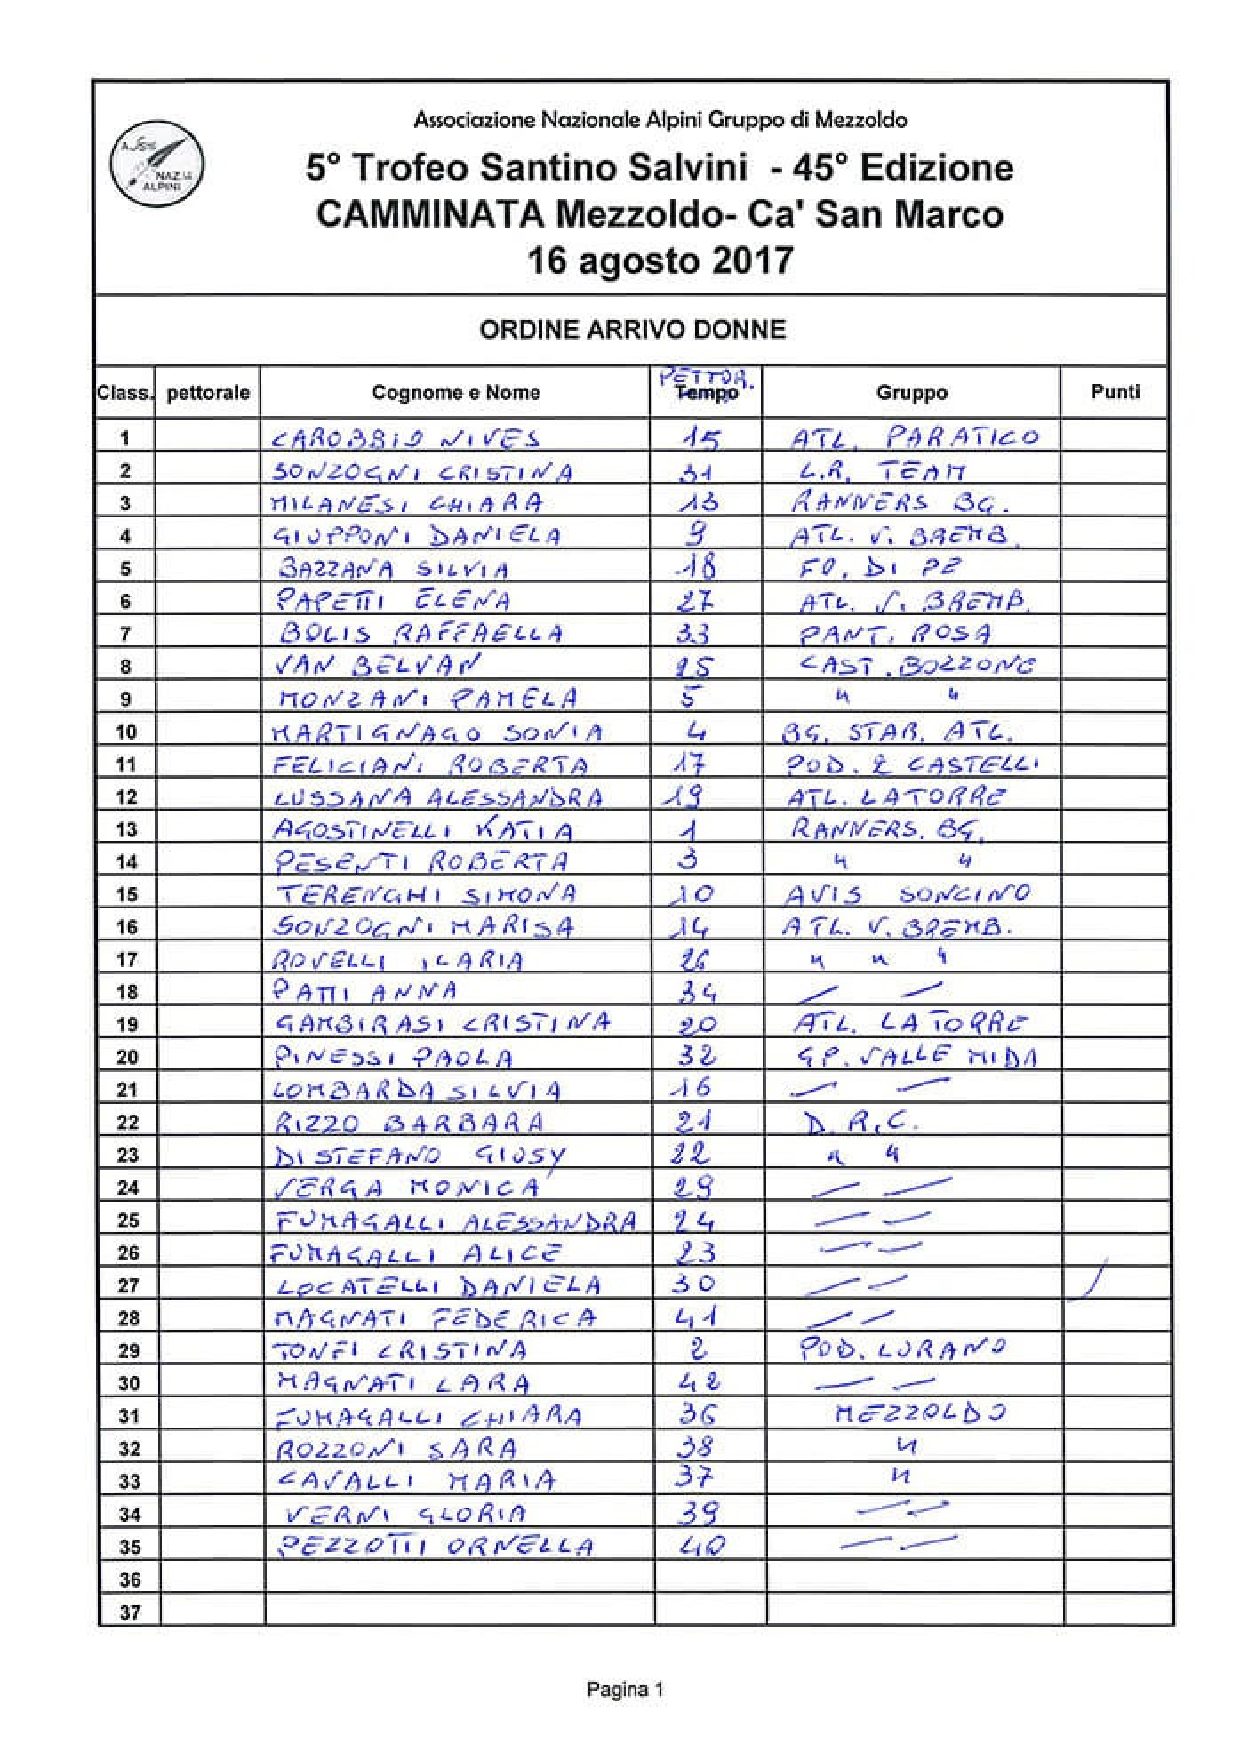 Associazione Nazionale Alpini Gruppo di Mezzoldo
5° Trofeo Santino Salvini - 45° Edizione
CAMMINATA Mezzoldo- Ca' San Marco
16 agosto 2017
NAZ.LE
ALPINI
ORDINE ARRIVO DONNE
PETTOR.
Class. pettorale Cognome e Nome Tempo Gruppo Punti
1 CAROBBIO NIVES 15 ATL. PARATICO
2 SONZOGNI CRISTINA 31 L.R. TEAM
3 MILANESI CHIARA 13 RANNERS BG.
4 GIUPPONI DANIELA 9 ATL. V. BREMB.
5 BAZZANA SILVIA 18 FO. DI PE
6 PAPETTI ELENA 27 ATL. V. BREMB.
7 BOLIS RAFFAELLA 33 PANT. ROSA
8 VAN BELVAN 25 CAST. BOZZONE
9 MONZANI PAMELA 5 " "
10 MARTIGNAGO SONIA 4 BG. STAR. ATL.
11 FELICIANI ROBERTA 17 POD. 2 CASTELLI
12 LUSSANA ALESSANDRA 19 ATL. LATORRE
13 AGOSTINELLI KATIA 1 RANNERS. BG.
14 PESENTI ROBERTA 3 " "
15 TERENGHI SIMONA 10 AVIS SONCINO
16 SONZOGNI MARISA 14 ATL. V. BREMB.
17 ROVELLI ILARIA 26 " " "
18 PATTI ANNA 34 — —
19 GAMBIRASI CRISTINA 20 ATL. LA TORRE
20 PINESSI PAOLA 32 GP. VALLE MIDA
21 LOMBARDA SILVIA 16 — —
22 RIZZO BARBARA 21 D.R.C.
23 DI STEFANO GIUSY 22 " "
24 VERGA MONICA 29 — —
25 FUMAGALLI ALESSANDRA 24 — —
26 FUMAGALLI ALICE 23 — —
27 LOCATELLI DANIELA 30 — —
28 MAGNATI FEDERICA 41 — —
29 TONFI CRISTINA 2 POD. LURANO
30 MAGNATI LARA 42 — —
31 FUMAGALLI CHIARA 36 MEZZOLDO
32 ROZZONI SARA 38 "
33 CAVALLI MARIA 37 "
34 VERNI GLORIA 39 — —
35 PEZZOTTI ORNELLA 40 — —
36
37
Pagina 1